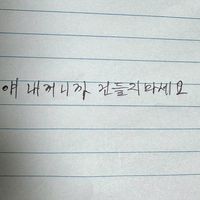 얘 내꺼니까 건들지마세요